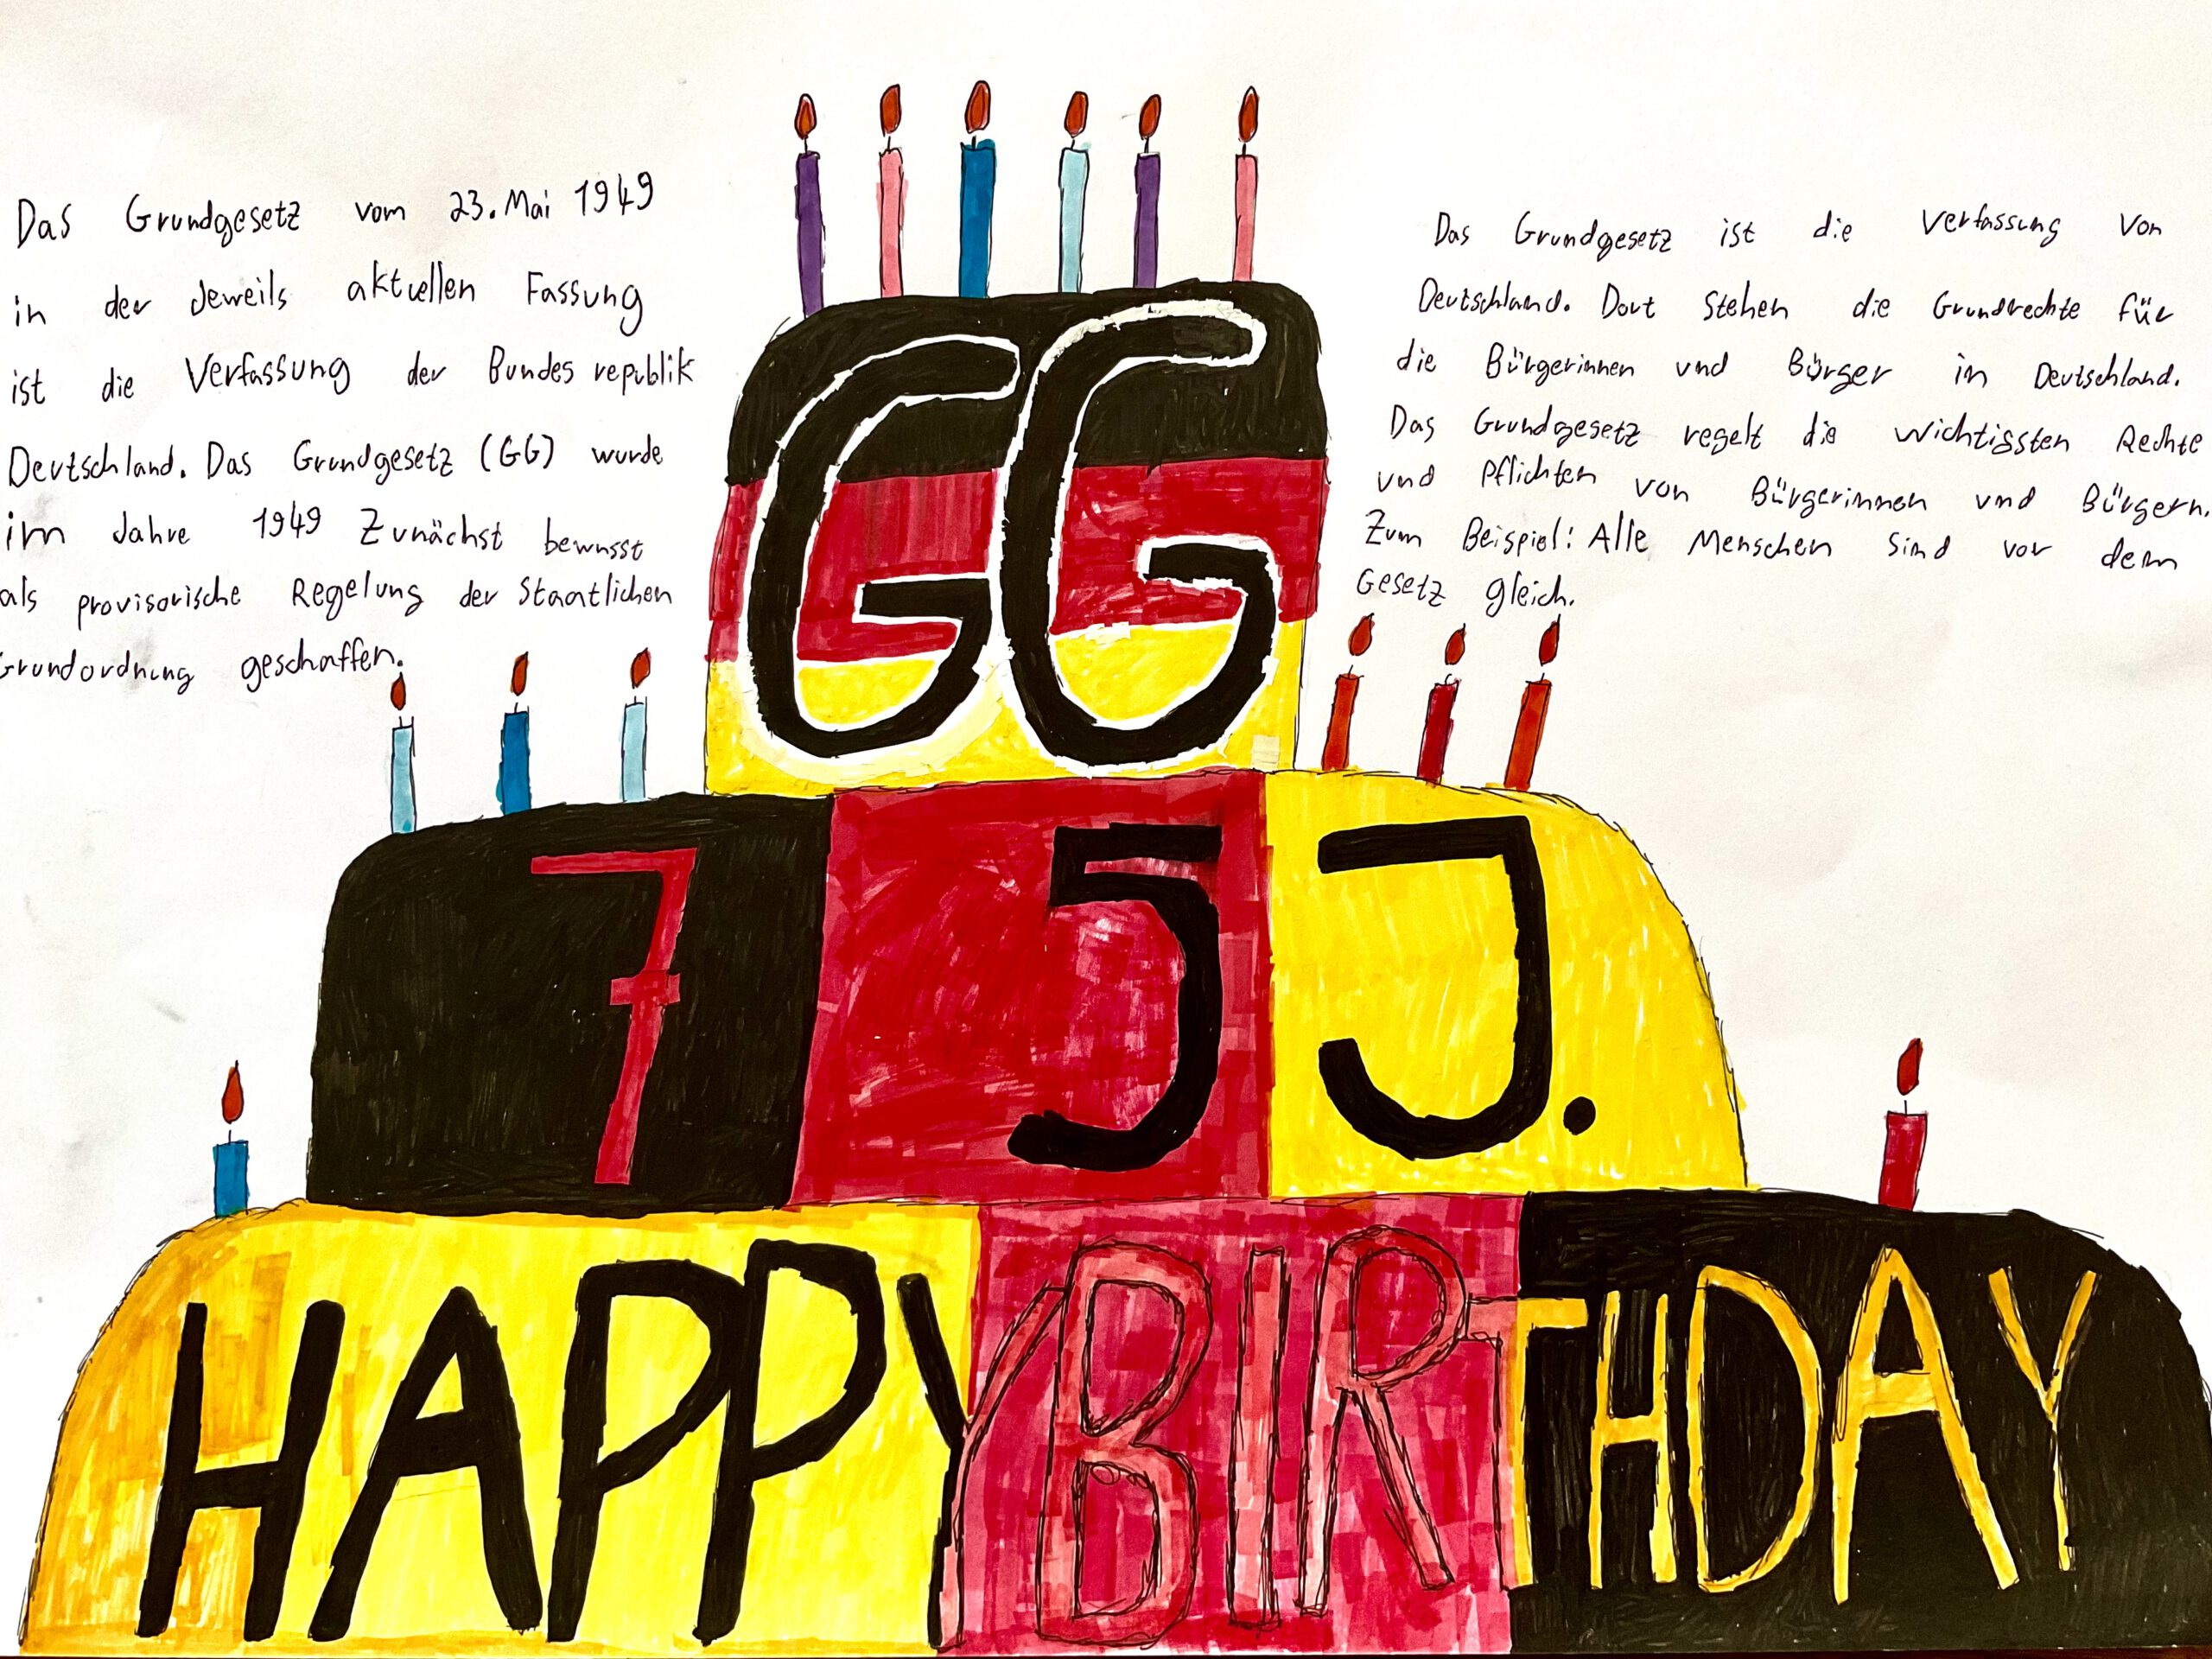 Das Grundgesetz vom 23. Mai 1949
in der Jeweils aktuellen Fassung
ist die Verfassung der Bundesrepublik
Deutschland. Das Grundgesetz (GG) wurde
im Jahre 1949 Zunächst bewusst
als provisorische Regelung der Staatlichen
Grundordnung geschaffen.
Das Grundgesetz ist die Verfassung von
Deutschland. Dort stehen die Grundrechte für
die Bürgerinnen und Bürger in Deutschland.
Das Grundgesetz regelt die wichtigsten Rechte
und Pflichten von Bürgerinnen und Bürgern.
Zum Beispiel: Alle Menschen sind vor dem
Gesetz gleich.
GG
75 J.
HAPPY BIRTHDAY